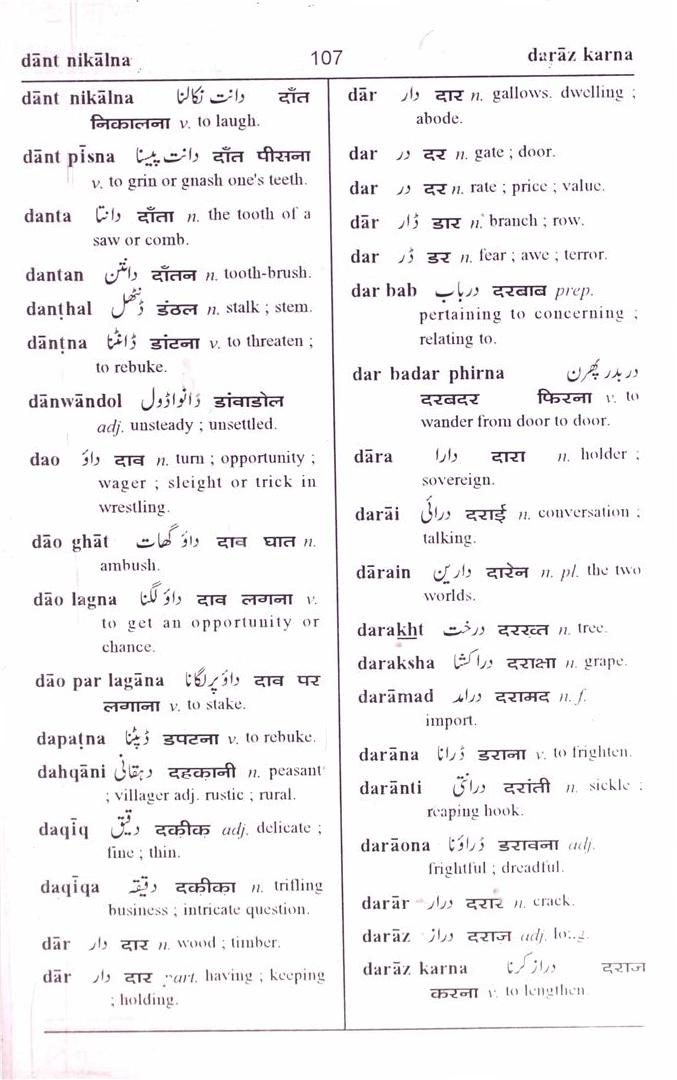 dānt nikālna 107 daṟāz karna
dānt nikālna دانت نکالنا दाँत
निकालना v. to laugh.
dānt pīsna دانت پیسنا दाँत पीसना
v. to grin or gnash one's teeth.
danta دانتا दाँता n. the tooth of a
saw or comb.
dantan داتن दाँतन n. tooth-brush.
danṭhal ڈنٹھل डंठल n. stalk ; stem.
dānṭna ڈانٹنا डांटना v. to threaten ;
to rebuke.
dānwāndol ڈانواڈول डांवाडोल
adj. unsteady ; unsettled.
dao داؤ दाव n. turn ; opportunity ;
wager ; sleight or trick in
wrestling.
dāo ghāt داؤ گھات दाव घात n.
ambush.
dāo lagna داؤ لگنا दाव लगना v.
to get an opportunity or
chance.
dāo par lagāna داؤ پر لگانا दाव पर
लगाना v. to stake.
dapaṭna ڈپٹنا डपटना v. to rebuke.
dahqāni دہقانی दहकानी n. peasant
; villager adj. rustic ; rural.
daqīq دقیق दकीक adj. delicate ;
fine ; thin.
daqīqa دقیقہ दकीका n. trifling
business ; intricate question.
dār دار दार n. wood ; timber.
dār دار दार part. having ; keeping
; holding.
dār دار दार n. gallows. dwelling ;
abode.
dar در दर n. gate ; door.
dar در दर n. rate ; price ; value.
dār ڈار डार n. branch ; row.
dar ڈر डर n. fear ; awe ; terror.
dar bab درباب दरबाब prep.
pertaining to concerning ;
relating to.
dar badar phirna در بدر پھرن
दरबदर फिरना v. to
wander from door to door.
dāra دارا दारा n. holder ;
sovereign.
darāi درائی दराई n. conversation ;
talking.
dārain دارین दारेन n. pl. the two
worlds.
darakht درخت दरख्त n. tree.
daraksha دراکشا दराक्षा n. grape.
darāmad درامد दरामद n. f.
import.
darāna ڈرانا डराना v. to frighten.
darānti درانتی दरांती n. sickle ;
reaping hook.
darāona ڈراؤنا डरावना adj.
frightful ; dreadful.
darār درار दरार n. crack.
darāz دراز दराज़ adj. long.
darāz karna دراز کرنا दराज
करना v. to lengthen.